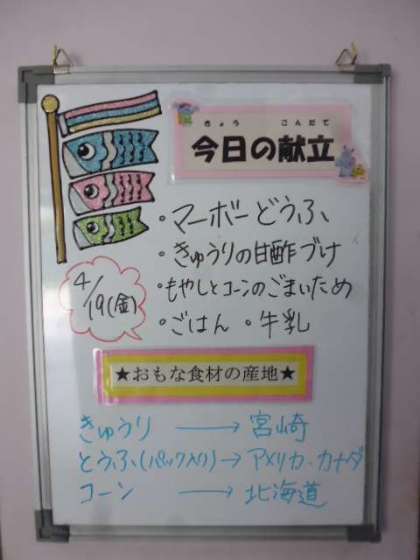 きょう こんだて
今日の献立
・マーボーどうふ
・きゅうりの甘酢づけ
4/19(金)
・もやしとコーンのごまいため
・ごはん ・牛乳
★おもな食材の産地★
きゅうり → 宮崎
とうふ(パック入り)→ アメリカ・カナダ
コーン → 北海道